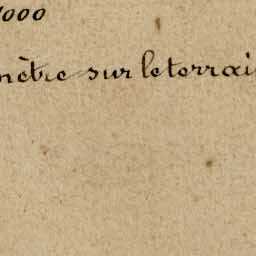 1000
mètre sur le terrai